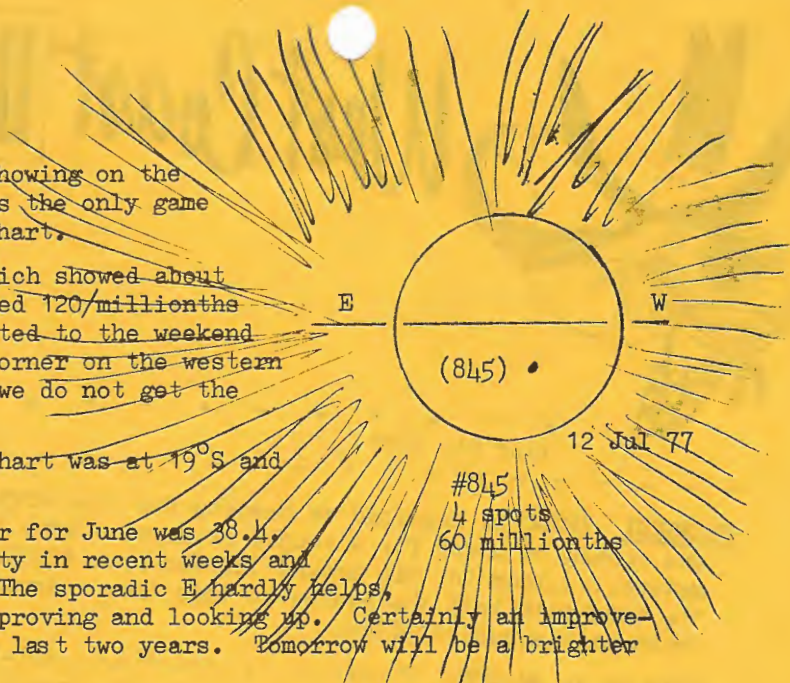 nowing on the
s the only game
hart.
ich showed about
ed 120/millionths
ted to the weekend
orner on the western
we do not get the
hart was at 19°S and
r for June was 38.4.
ty in recent weeks and
The sporadic E hardly helps,
proving and looking up. Certainly an improve-
last two years. Tomorrow will be a brighter
E
W
(845)
12 Jul 77
#845
4 spots
60 millionths